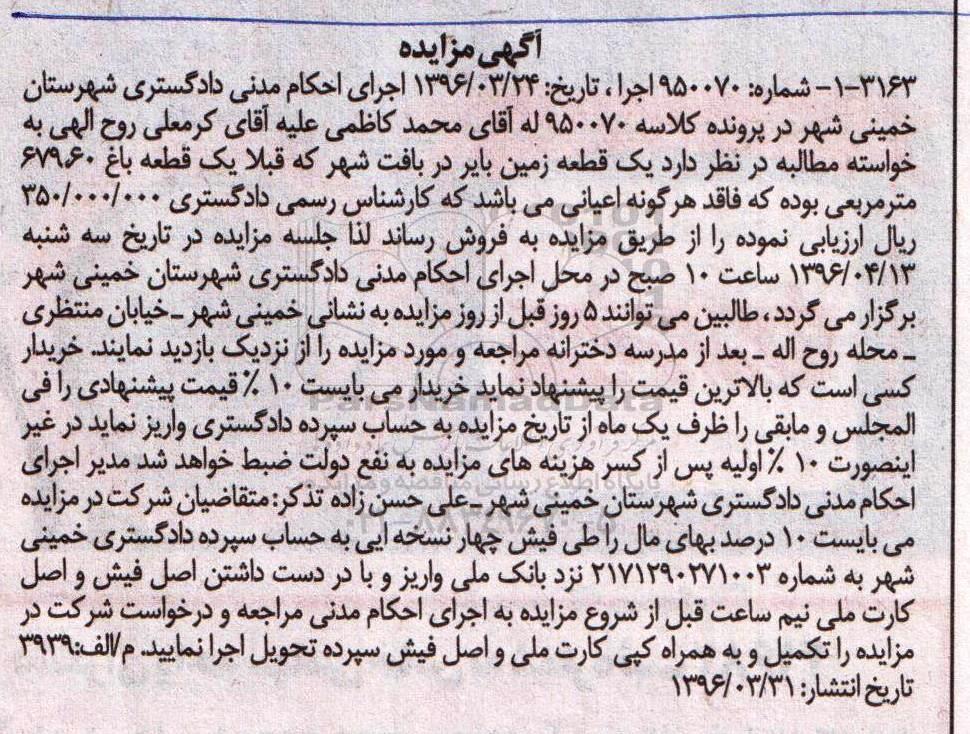 آگهی مزایده
۳۱۶۳-۱- شماره: ۹۵۰۰۷۰ اجرا، تاریخ: ۱۳۹۶/۰۳/۲۴ اجرای احکام مدنی دادگستری شهرستان
خمینی شهر در پرونده کلاسه ۹۵۰۰۷۰ له آقای محمد کاظمی علیه آقای کرمعلی روح الهی به
خواسته مطالبه در نظر دارد یک قطعه زمین بایر در بافت شهر که قبلا یک قطعه باغ ۶۷۹.۶۰
مترمربعی بوده که فاقد هرگونه اعیانی می باشد که کارشناس رسمی دادگستری ۳۵۰/۰۰۰/۰۰۰
ریال ارزیابی نموده را از طریق مزایده به فروش رساند لذا جلسه مزایده در تاریخ سه شنبه
۱۳۹۶/۰۴/۱۳ ساعت ۱۰ صبح در محل اجرای احکام مدنی دادگستری شهرستان خمینی شهر
برگزار می گردد، طالبین می توانند ۵ روز قبل از روز مزایده به نشانی خمینی شهر ـ خیابان منتظری
ـ محله روح اله ـ بعد از مدرسه دخترانه مراجعه و مورد مزایده را از نزدیک بازدید نمایند. خریدار
کسی است که بالاترین قیمت را پیشنهاد نماید خریدار می بایست ۱۰ ٪ قیمت پیشنهادی را فی
المجلس و مابقی را ظرف یک ماه از تاریخ مزایده به حساب سپرده دادگستری واریز نماید در غیر
اینصورت ۱۰ ٪ اولیه پس از کسر هزینه های مزایده به نفع دولت ضبط خواهد شد مدیر اجرای
احکام مدنی دادگستری شهرستان خمینی شهر ـ علی حسن زاده تذکر: متقاضیان شرکت در مزایده
می بایست ۱۰ درصد بهای مال را طی فیش چهار نسخه ایی به حساب سپرده دادگستری خمینی
شهر به شماره ۲۱۷۱۲۹۰۲۷۱۰۰۳ نزد بانک ملی واریز و با در دست داشتن اصل فیش و اصل
کارت ملی نیم ساعت قبل از شروع مزایده به اجرای احکام مدنی مراجعه و درخواست شرکت در
مزایده را تکمیل و به همراه کپی کارت ملی و اصل فیش سپرده تحویل اجرا نمایید. م/الف:۳۹۳۹
تاریخ انتشار: ۱۳۹۶/۰۳/۳۱
ParsNamadData